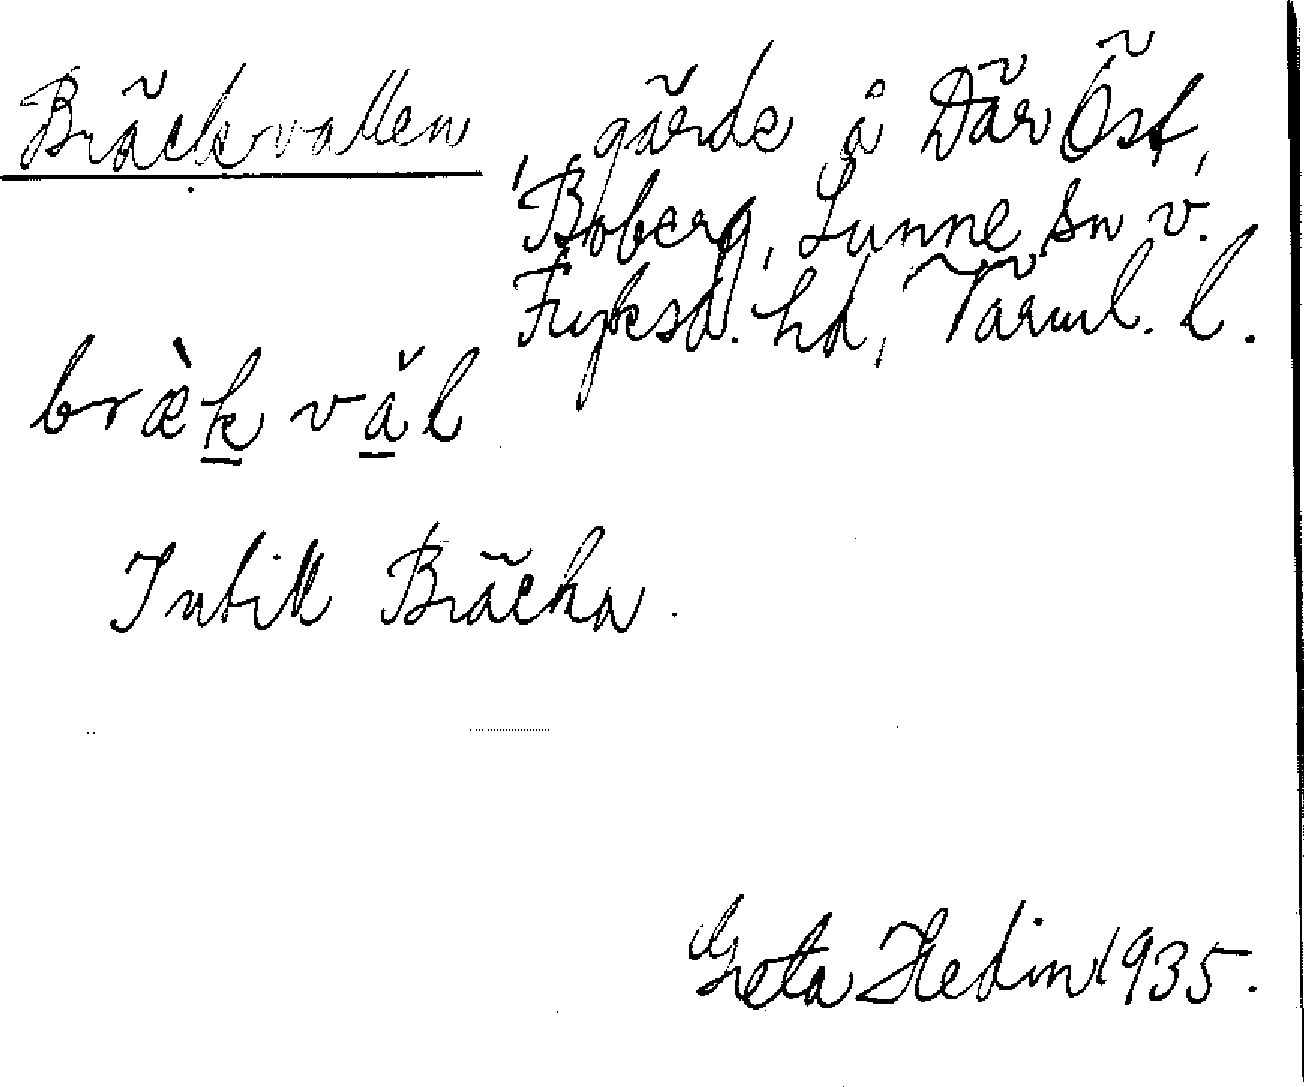 Bräckvallen, gärde å Där Öst,
Boberg, Sunne sn v.
Fryksd. hd, Värml. l.
bræ̀k văl
Intill Bräcka.
Greta Hedin 1935.